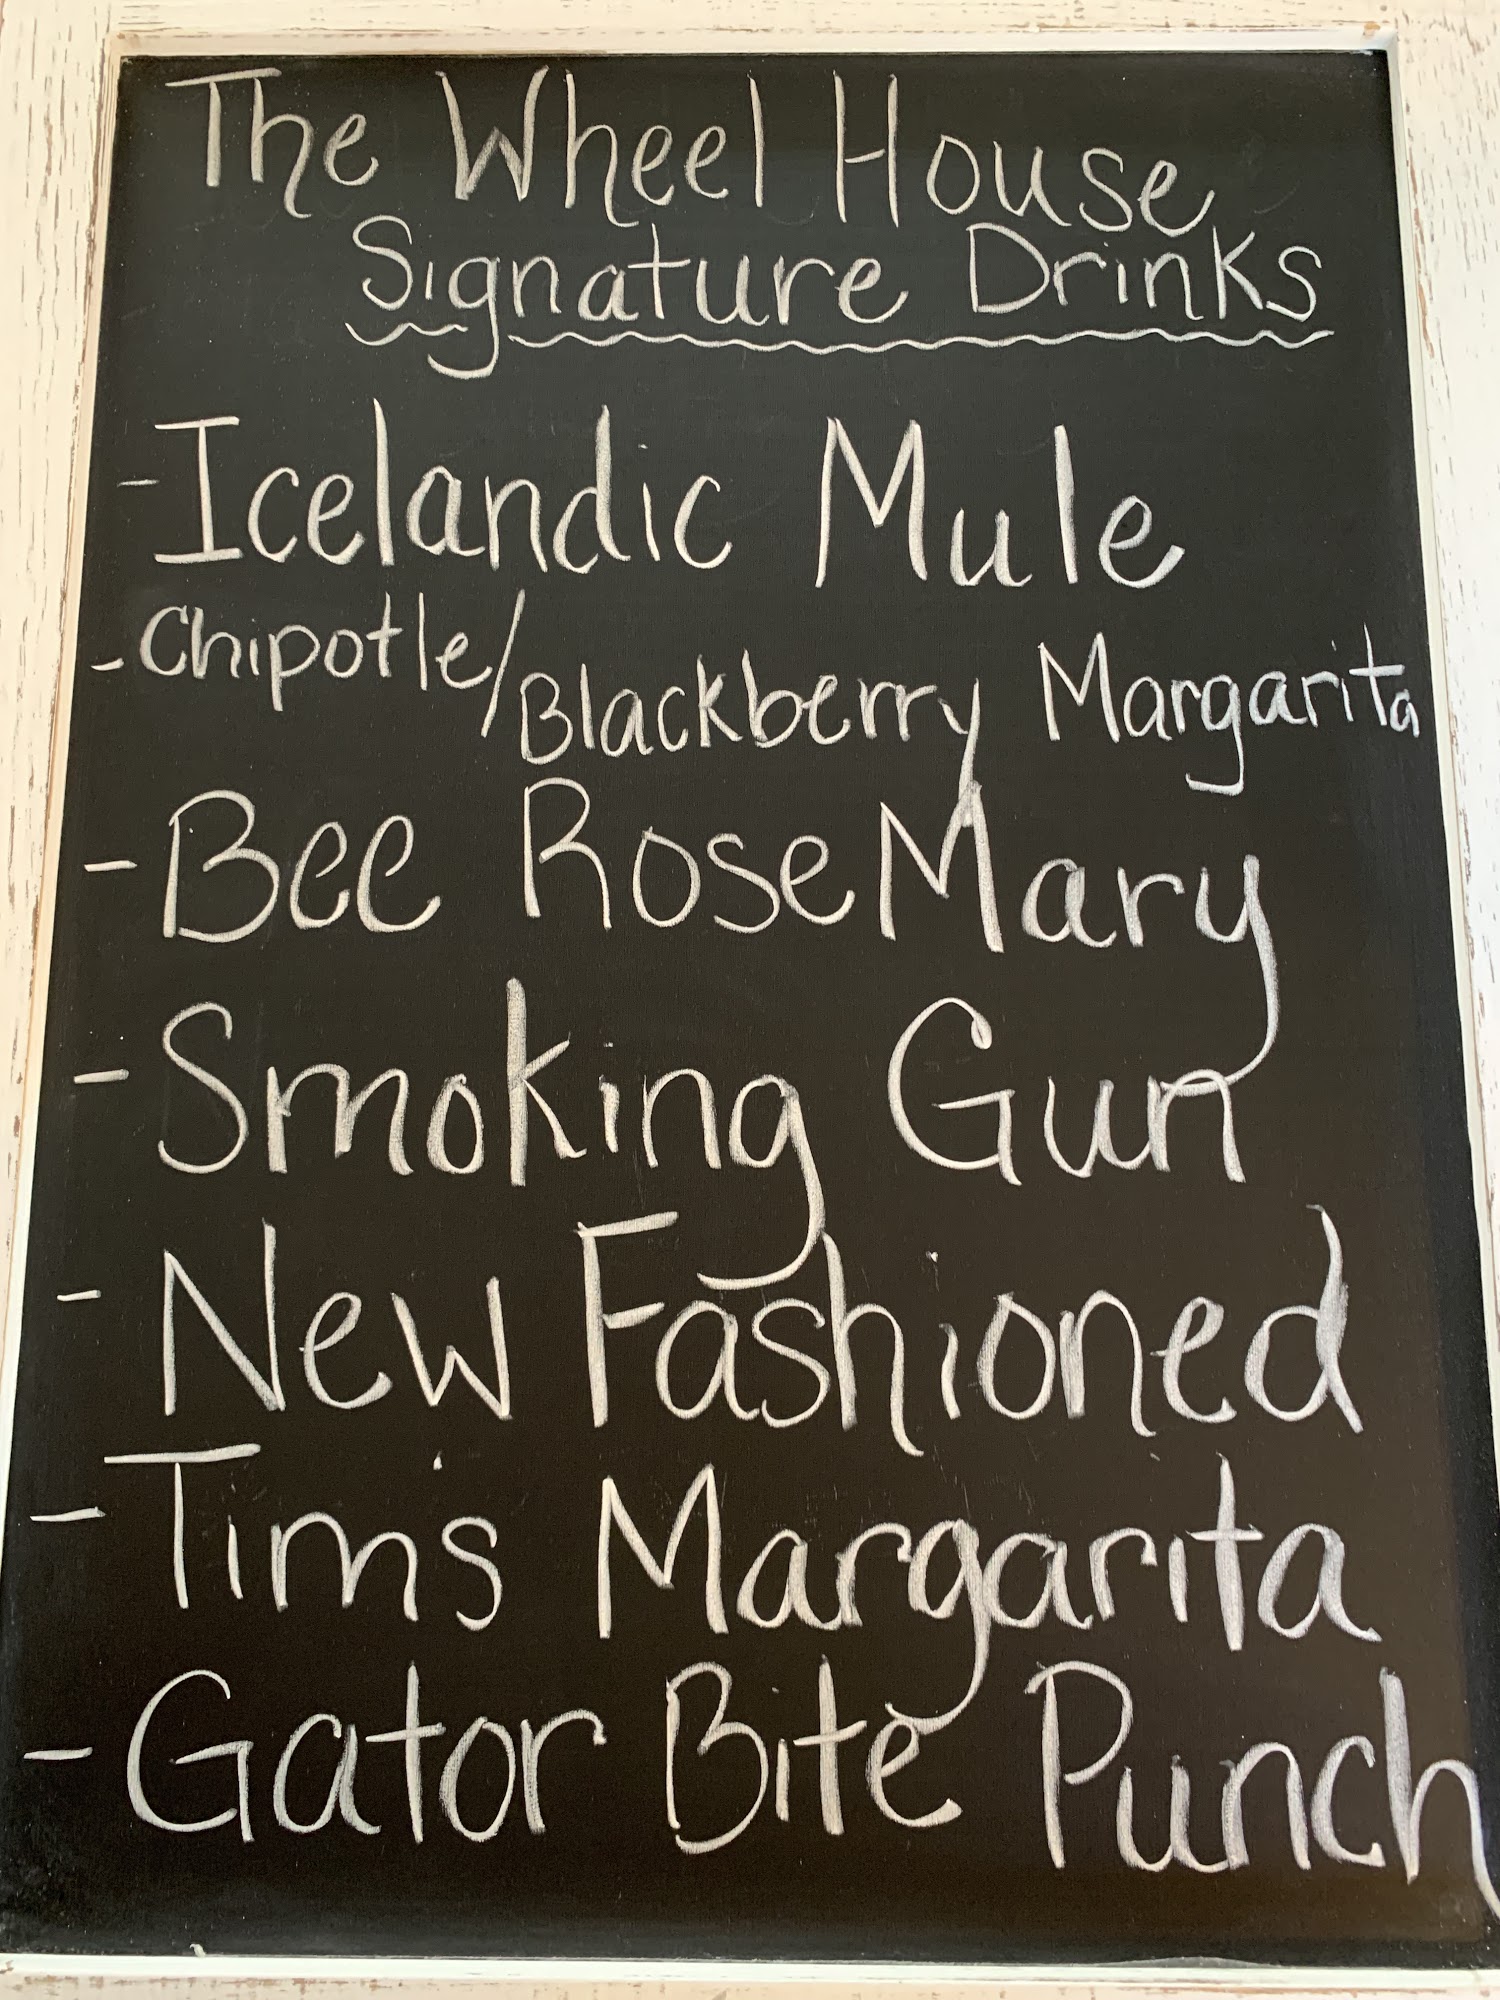 The Wheel House
Signature Drinks
- Icelandic Mule
- Chipotle/Blackberry Margarita
- Bee RoseMary
- Smoking Gun
- New Fashioned
- Tim's Margarita
- Gator Bite Punch